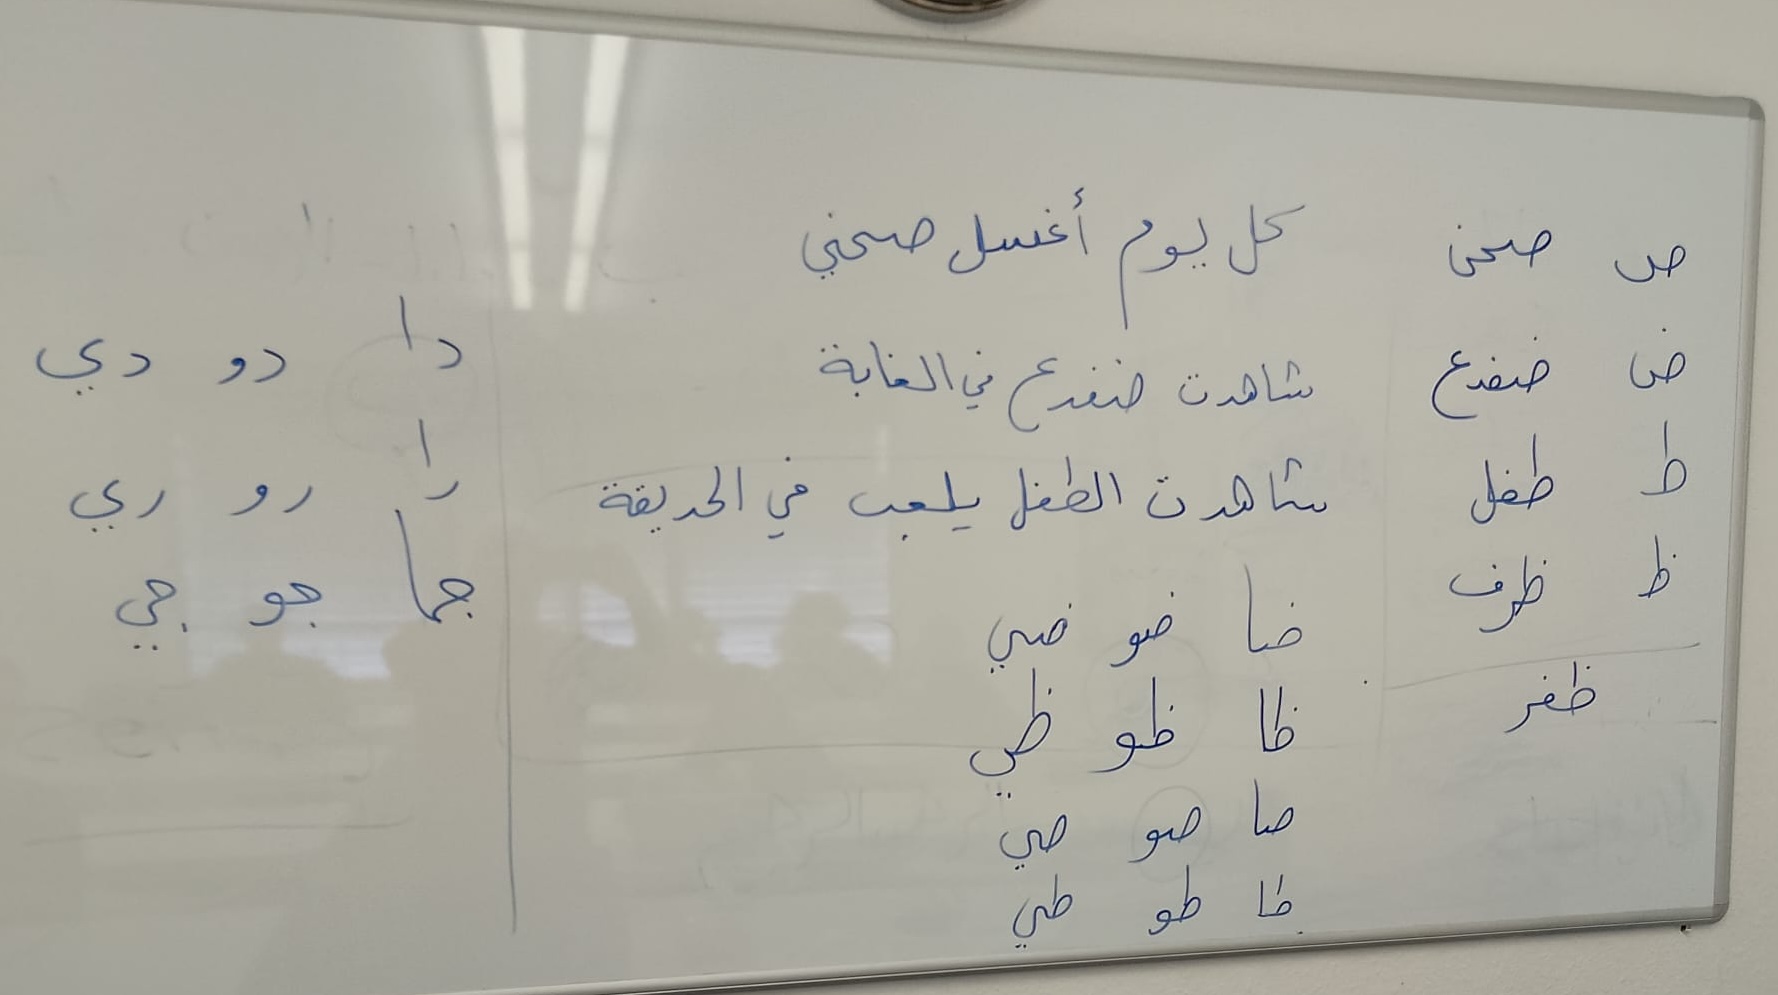 ص صحن
ض ضفدع
ط طفل
ظ ظرف
ظفر
كل يوم أغسل صحني
شاهدت ضفدع في الغابة
شاهدت الطفل يلعب في الحديقة
ضا ضو ضي
ظا ظو ظي
صا صو صي
طا طو طي
دا دو دي
را رو ري
جا جو جي